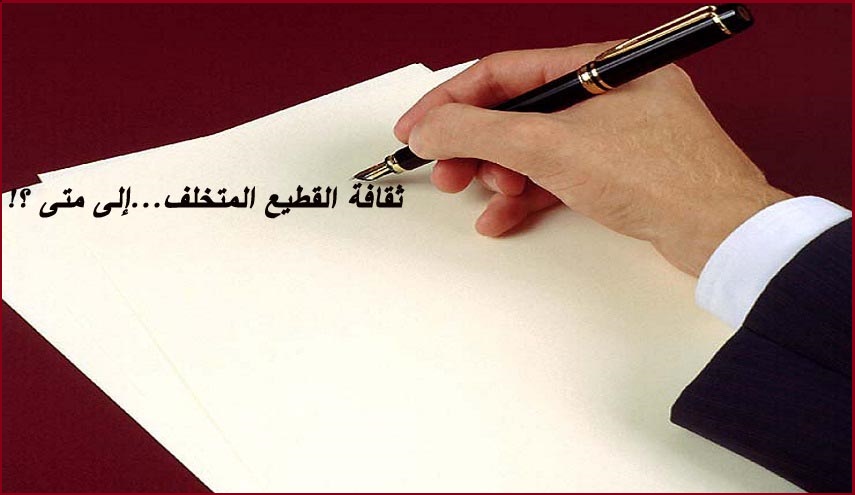 ثقافة القطيع المتخلف...إلى متى ؟!